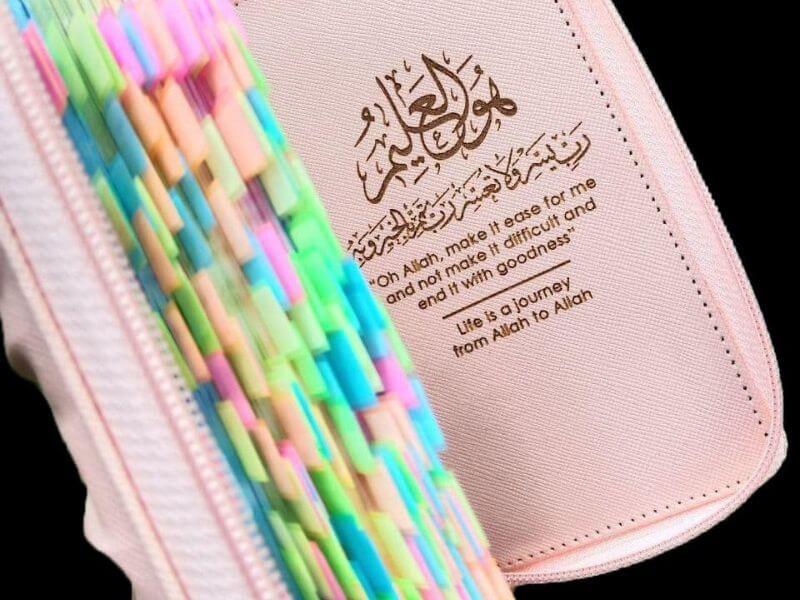 هو العليم
رب يسر ولا تعسر رب تمم بالخير وبه
"Oh Allah, make it ease for me
and not make it difficult and
end it with goodness"
Life is a journey
from Allah to Allah